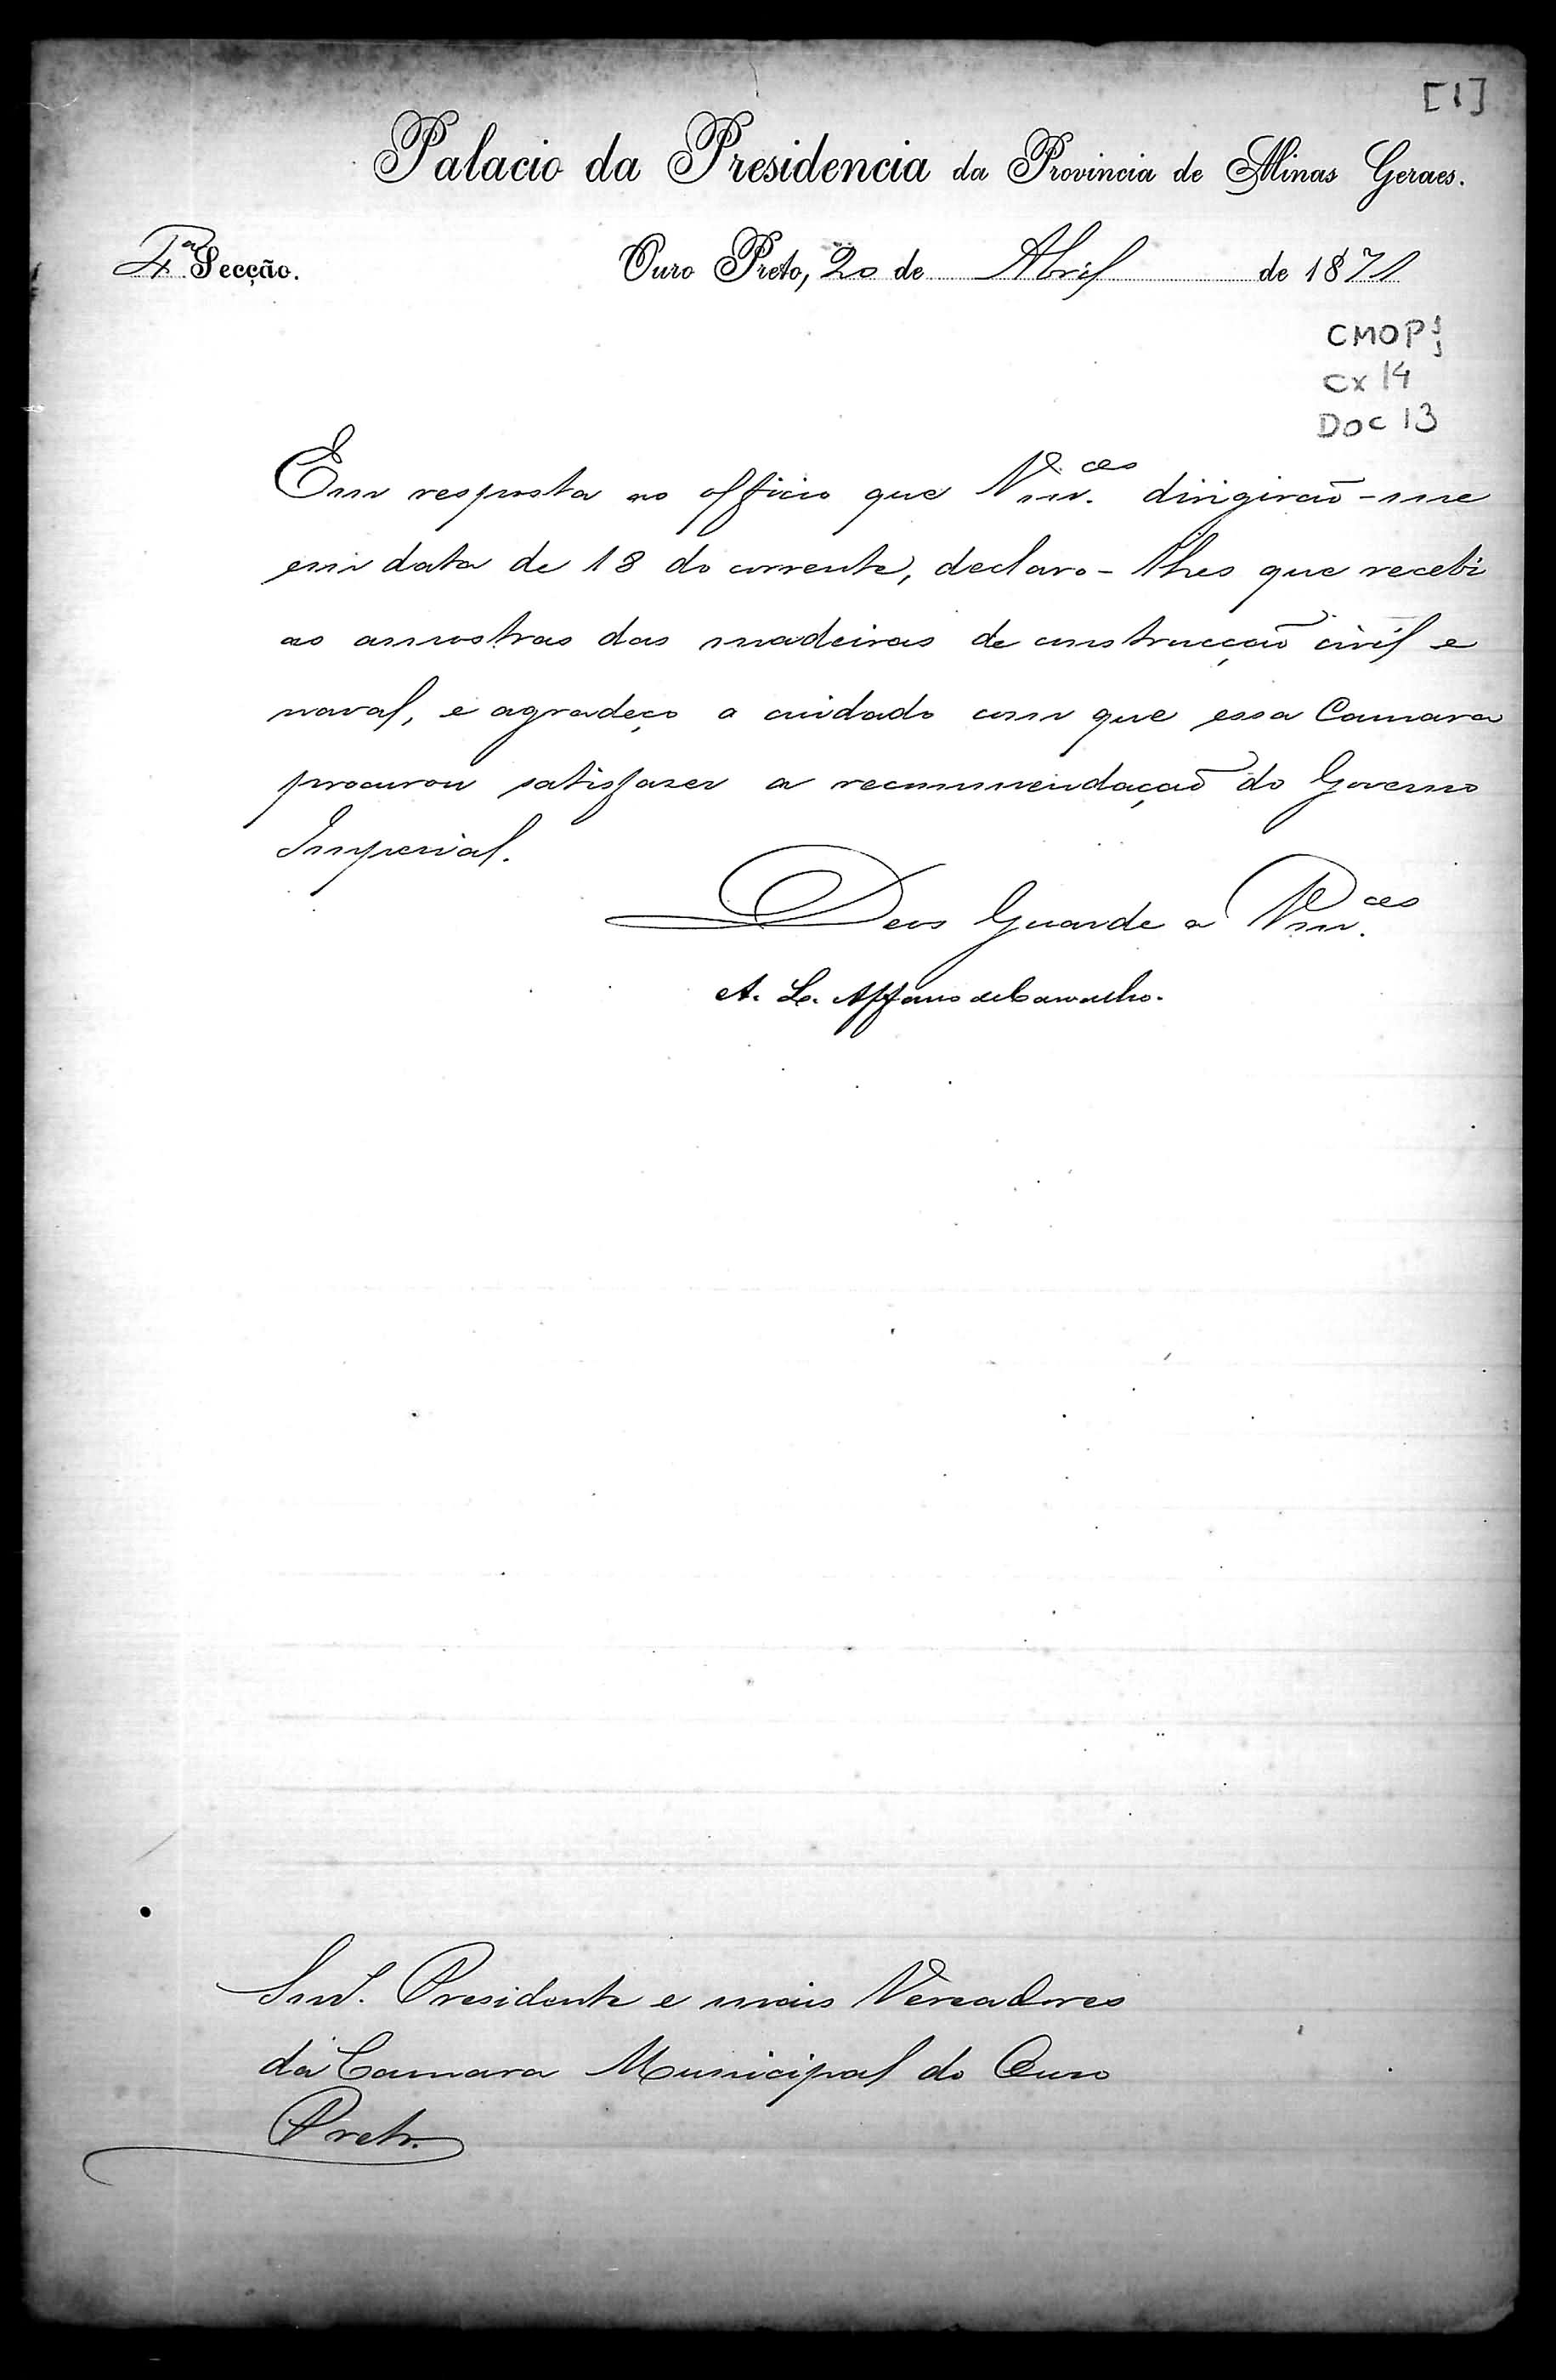 [1]
Palacio da Presidencia da Provincia de Minas Geraes.
4ª Secção. Ouro Preto, 20 de Abril de 1871
CMOP
Cx 14
Doc 13
Em resposta ao officio que Vm.ces dirigirão-me
em data de 18 do corrente, declaro-lhes que recebi
as amostras das madeiras de construcção civil e
naval, e agradeço o cuidado com que essa Camara
procurou satisfazer a recommendação do Governo
Imperial.
Deos Guarde a Vm.ces
A. L. Affonso de Carvalho.
Snr. Presidente e mais Vereadores
da Camara Municipal do Ouro
Preto.